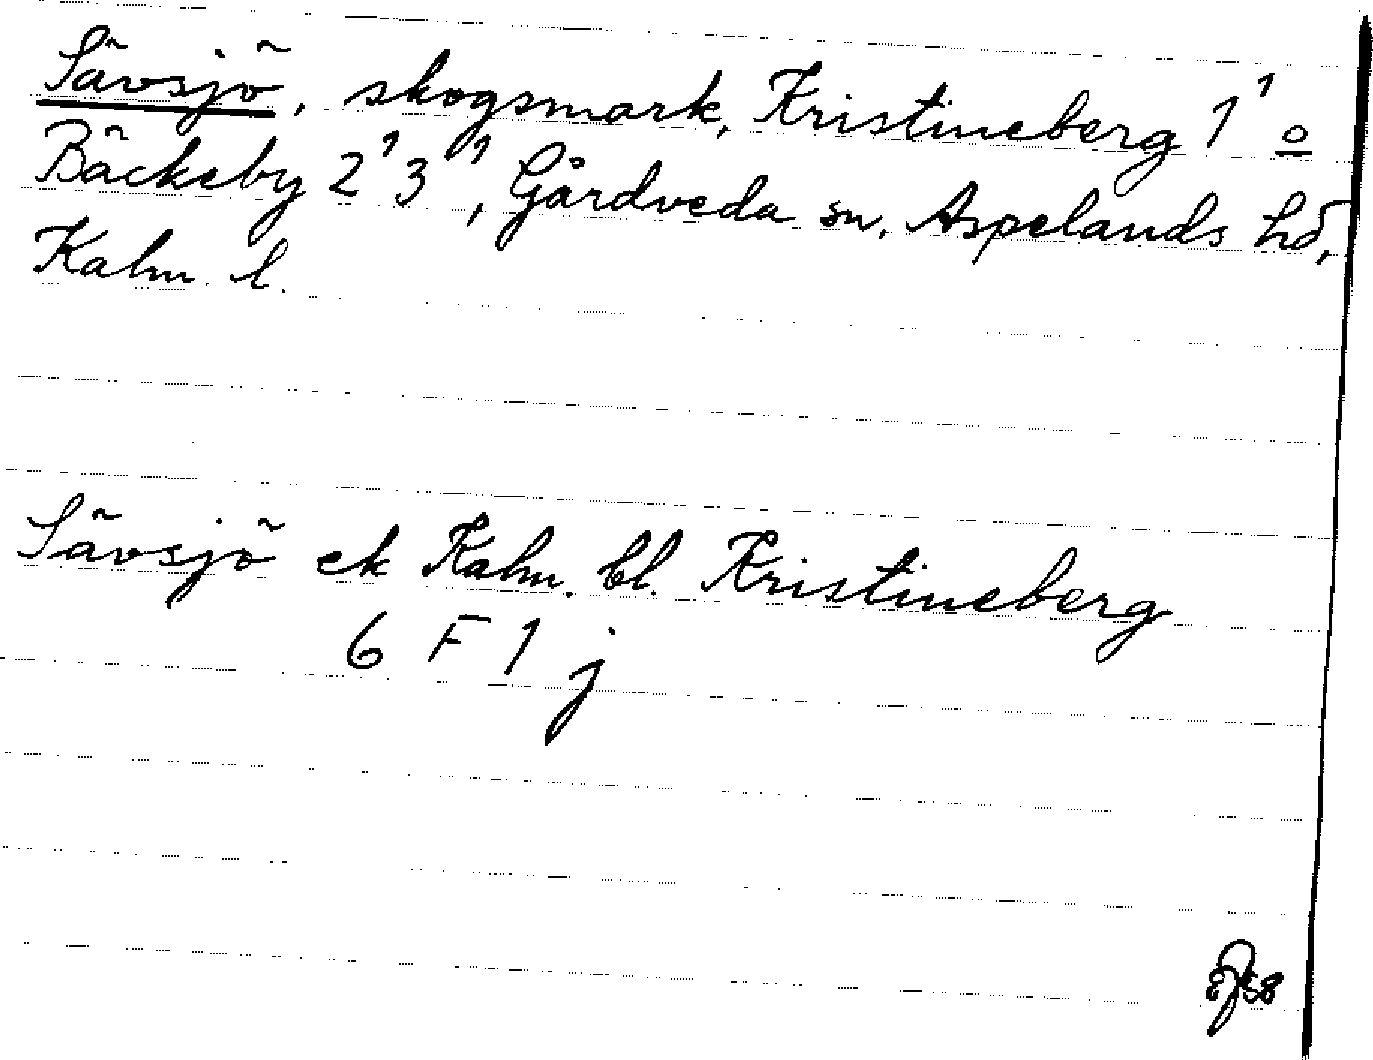 Sävsjö, skogsmark, Kristineberg 1¹ o
Bäckeby 2¹ 3¹, Gårdveda sn, Aspelands hd,
Kalm. l.
Sävsjö ek Kalm. bl. Kristineberg
6 F 1 j
58